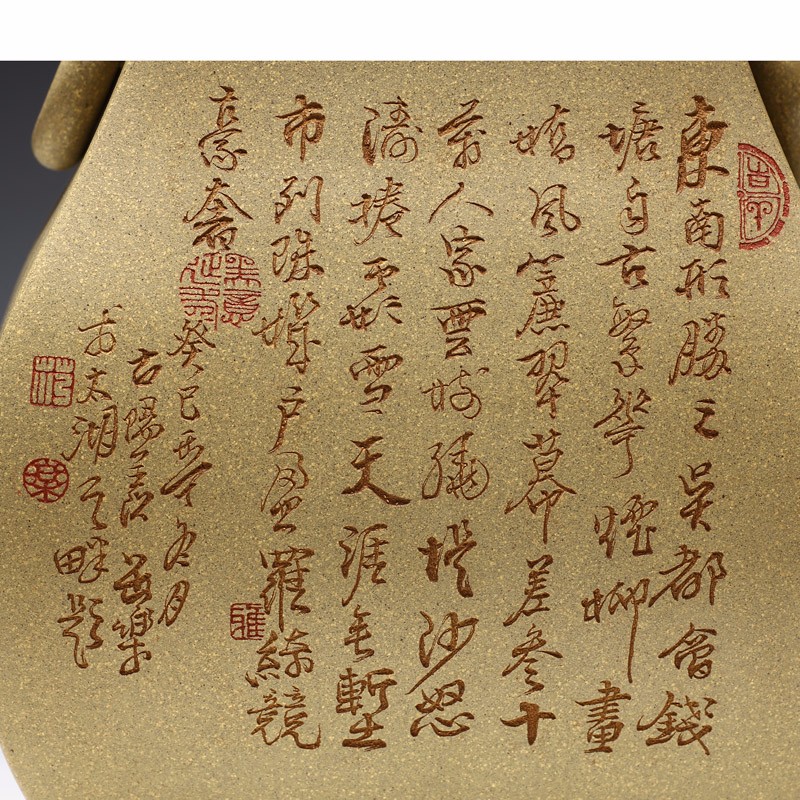 東南形勝之吳都會錢
塘自古繁華煙柳畫
橋風簾翠幕差參十
萬人家雲樹繞堤沙怒
濤捲霜雪天涯無塹
市列珠璣戶盈羅綺競
豪奢
癸巳冬月
古陽羨樂
於太湖之畔題
雅